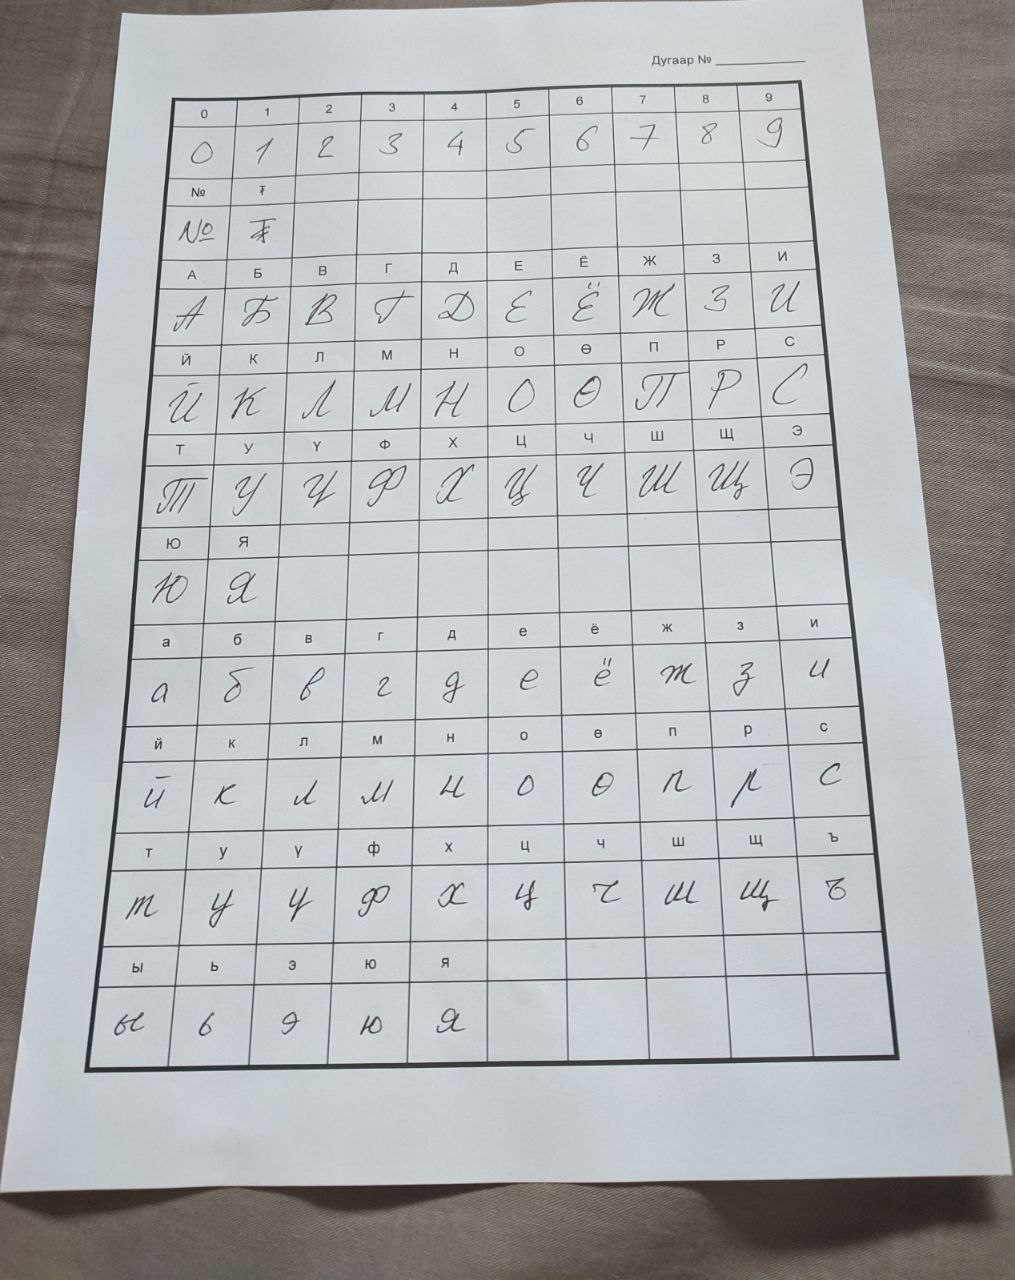 Дугаар № ____________
0 1 2 3 4 5 6 7 8 9
0 1 2 3 4 5 6 7 8 9
№ ₮
№ ₮
А Б В Г Д Е Ё Ж З И
А Б В Г Д Е Ё Ж З И
Й К Л М Н О Ө П Р С
Й К Л М Н О Ө П Р С
Т У Ү Ф Х Ц Ч Ш Щ Э
Т У Ү Ф Х Ц Ч Ш Щ Э
Ю Я
Ю Я
а б в г д е ё ж з и
а б в г д е ё ж з и
й к л м н о ө п р с
й к л м н о ө п р с
т у ү ф х ц ч ш щ ъ
т у ү ф х ц ч ш щ ъ
ы ь э ю я
ы ь э ю я